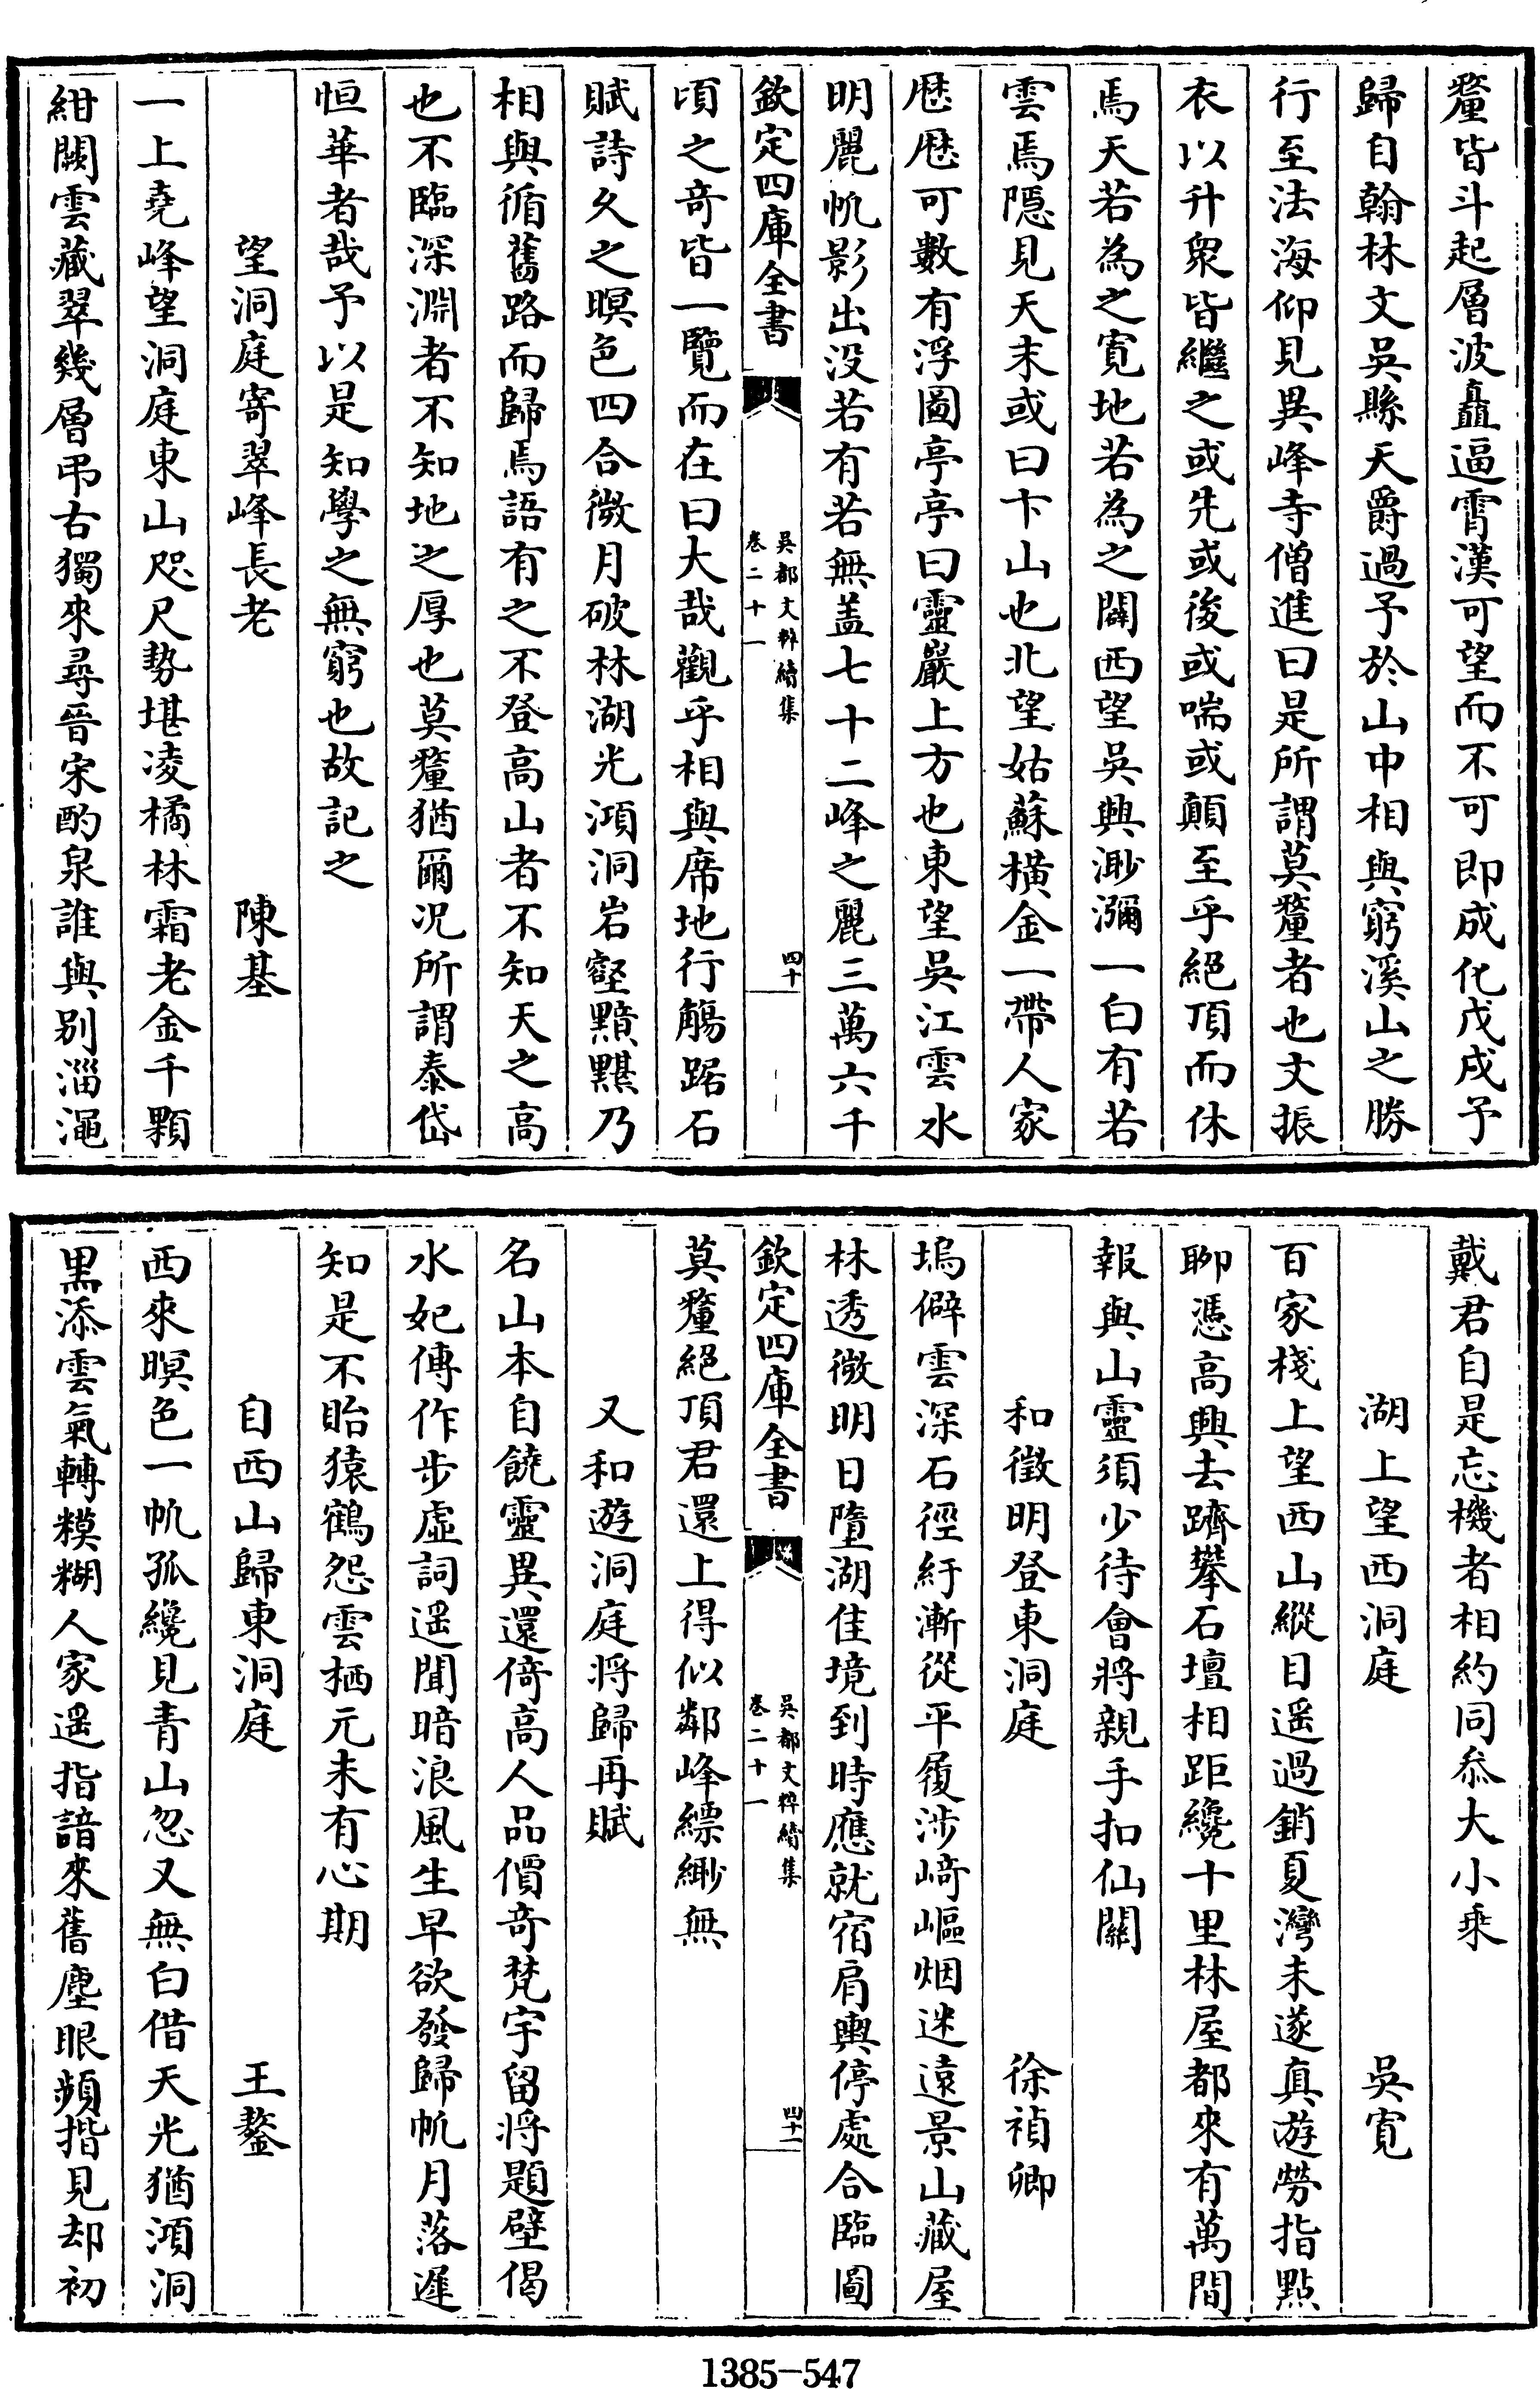 釐皆斗起層波矗逼霄漢可望而不可即成化戊戌予
歸自翰林文吳縣天爵過予於山中相與窮溪山之勝
行至法海仰見異峰寺僧進曰是所謂莫釐者也文振
衣以升衆皆繼之或先或後或喘或顛至乎絕頂而休
焉天若為之寛地若為之闢西望吳興渺瀰一白有若
雲焉隱見天末或曰卞山也北望姑蘇橫金一帶人家
歴歴可數有浮圖亭亭曰靈巖上方也東望吳江雲水
明麗帆影出没若有若無盖七十二峰之麗三萬六千
欽定四庫全書
吳都文粹續集
卷二十一
四十
頃之奇皆一覽而在曰大哉觀乎相與席地行觴踞石
賦詩久之暝色四合微月破林湖光澒洞岩壑黯黮乃
相與循舊路而歸焉語有之不登高山者不知天之高
也不臨深淵者不知地之厚也莫釐猶爾况所謂泰岱
恒華者哉予以是知學之無窮也故記之
望洞庭寄翠峰長老 陳基
一上堯峰望洞庭東山咫尺勢堪凌橘林霜老金千顆
紺闕雲藏翠幾層弔古獨來尋晉宋酌泉誰與別淄澠
戴君自是忘機者相約同叅大小乘
湖上望西洞庭 吳寛
百家棧上望西山縱目遥過銷夏灣未遂真遊勞指點
聊憑高興去躋攀石壇相距纔十里林屋都來有萬間
報與山靈須少待會將親手扣仙關
和徵明登東洞庭 徐禎卿
塢僻雲深石徑紆漸從平履涉﨑嶇烟迷遠景山藏屋
林透微明日墮湖佳境到時應就宿肩輿停處合臨圖
莫釐絕頂君還上得似鄰峰縹緲無
欽定四庫全書
吳都文粹續集
卷二十一
四十一
又和遊洞庭將歸再賦
名山本自饒靈異還倚高人品價奇梵宇留將題壁偈
水妃傳作步虛詞遥聞暗浪風生早欲發歸帆月落遲
知是不貽猿鶴怨雲栖元未有心期
自西山歸東洞庭 王鏊
西來暝色一帆孤纔見青山忽又無白借天光猶澒洞
黒添雲氣轉糢糊人家遥指諳來舊塵眼頻揩見却初
1385-547